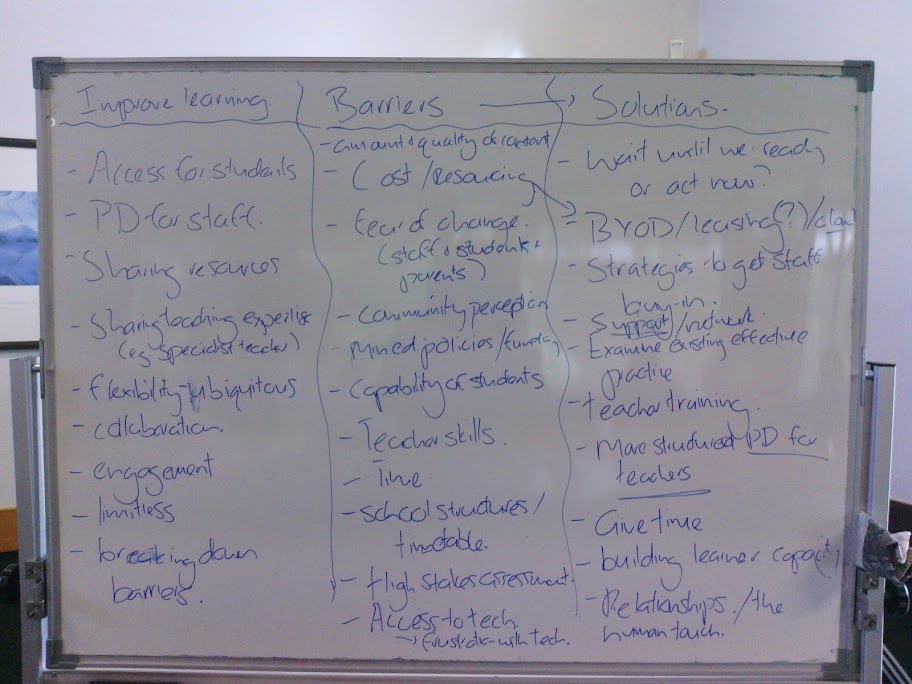 Improve learning
- Access for students
- PD for staff.
- Sharing resources
- Sharing teaching expertise
(eg. specialist teacher)
- flexibility - ubiquitous
- collaboration.
- engagement
- limitless
- breaking down
barriers.
Barriers →
- amount & quality of content
- Cost/resourcing
- fear of change.
(staff & students &
parents)
- Community perception
- Mixed policies/funding
- Capability of students
- Teacher skills.
- Time
- school structures/
timetable.
- High stakes assessment.
- Access to tech.
→ frustration with tech.
Solutions.
- Wait until we ready
or act now?
- BYOD/leasing(?)/
- Strategies to get staff
buy-in.
- Support/network.
- Examine existing effective
practice
- teacher training.
- More structured PD for
teachers
- Give time
- building learner capacity
- Relationships./the
human touch.